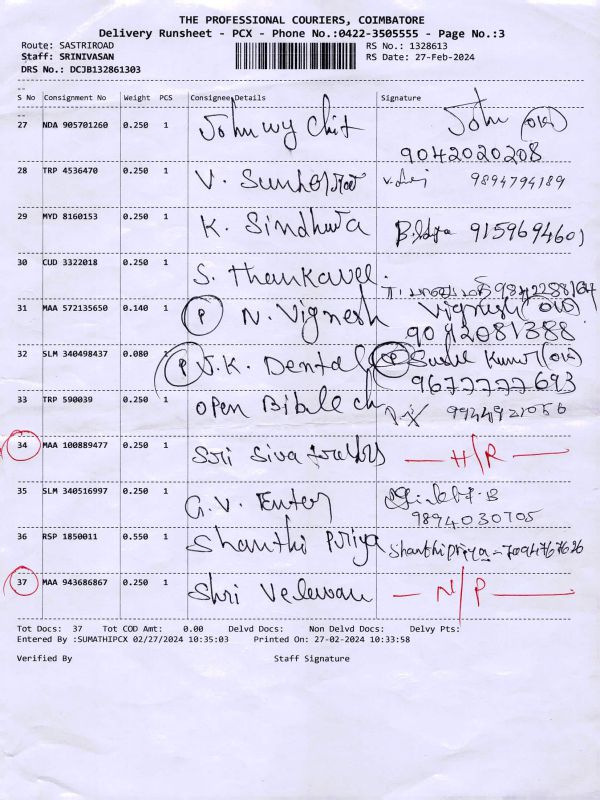 THE PROFESSIONAL COURIERS, COIMBATORE
Delivery Runsheet - PCX - Phone No.:0422-3505555 - Page No.:3
Route: SASTRIROAD RS No.: 1328613
Staff: SRINIVASAN RS Date: 27-Feb-2024
DRS No.: DCJB132861303
S No Consignment No Weight PCS Consignee Details Signature
27 NDA 905701260 0.250 1 Johnwy Chit John
9042020208
28 TRP 4536470 0.250 1 V. 9894794189
29 MYD 8160153 0.250 1 K. Sindhuta 9159694601
30 CUD 3322018 0.250 1 S. Thankavel.
31 MAA 572135650 0.140 1 (P) N. Vignesh Vignesh
9042081388
32 SLM 340498437 0.080 1 (P) V.K. Dental (P) Sushil Kumar
9677777693
33 TRP 590039 0.250 1 open Bible ch 9944921056
34 MAA 100889477 0.250 1 Sri Siva H/R
35 SLM 340516997 0.250 1 G.V. Enter
9894030705
36 RSP 1850011 0.550 1 Shanthi Priya Shanthipriya - 7094767626
37 MAA 943686867 0.250 1 Shri Velavan N/P
Tot Docs: 37 Tot COD Amt: 0.00 Delvd Docs: Non Delvd Docs: Delvy Pts:
Entered By :SUMATHIPCX 02/27/2024 10:35:03 Printed On: 27-02-2024 10:33:58
Verified By Staff Signature